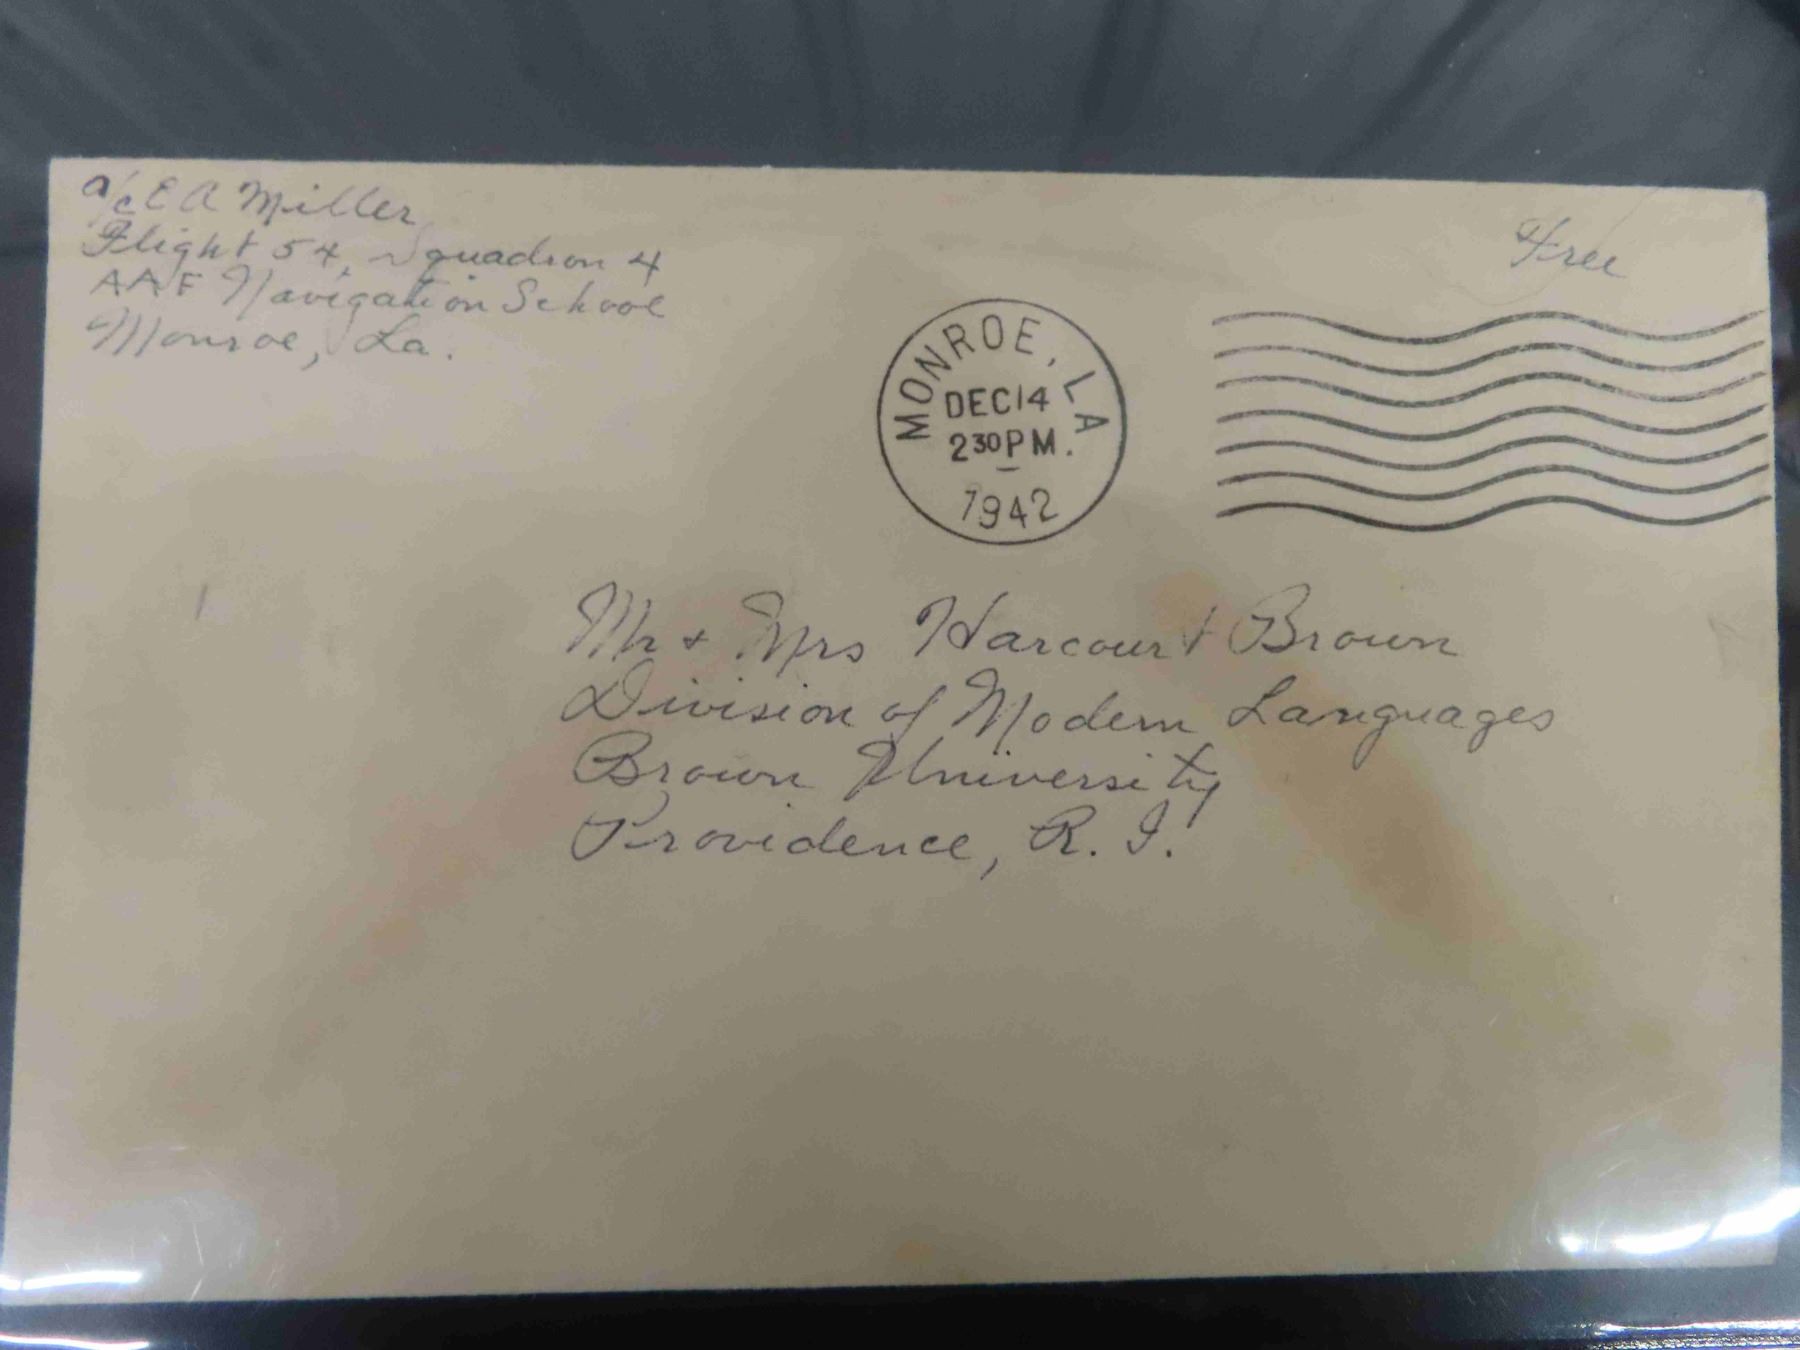 a/c E A Miller
Flight 54, Squadron 4
AAF Navigation School
Monroe, La.
Free
MONROE, LA
DEC 14
2 30 PM.
1942
Mr + Mrs Harcourt Brown
Division of Modern Languages
Brown University
Providence, R. I.